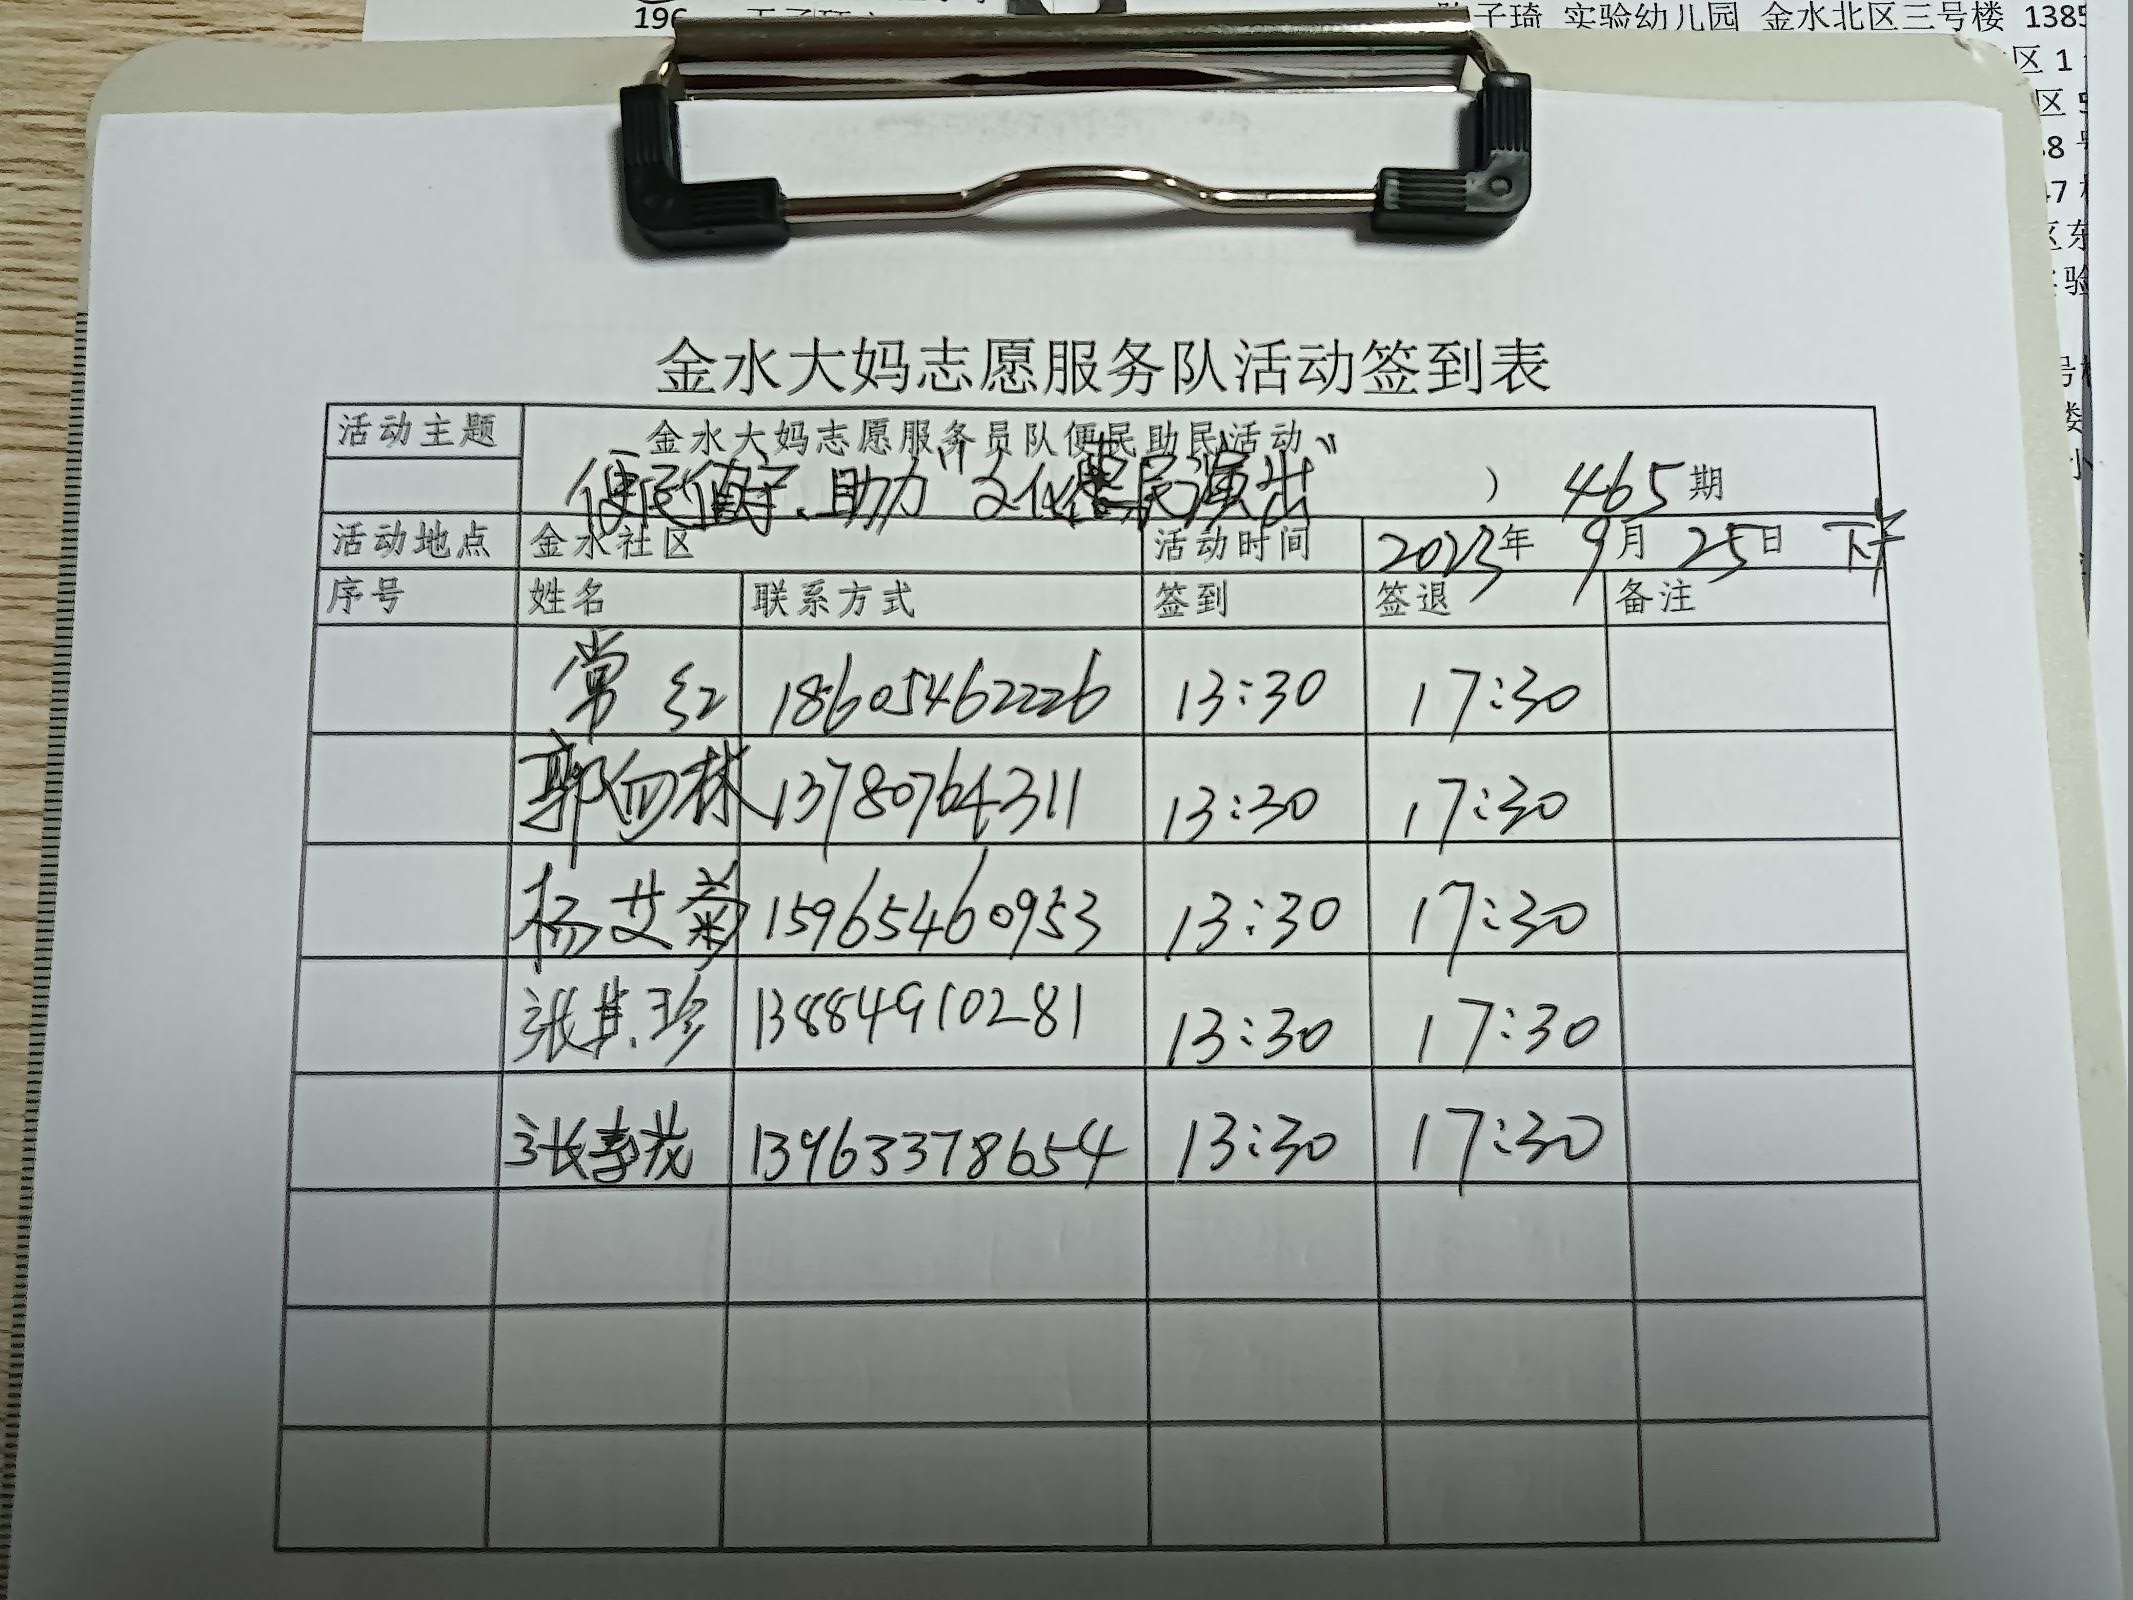 196
陈子琦 实验幼儿园 金水北区三号楼 1385
区 1
区 9
38 号
47
区东
实验
号
楼
金水大妈志愿服务队活动签到表
活动主题 金水大妈志愿服务员队便民助民活动
便民值守、助力“文化惠民演出” ） 465期
活动地点 金水社区 活动时间 2023年 9月 25日 下午
序号 姓名 联系方式 签到 签退 备注
常红 18605462226 13:30 17:30
郭向林 13780764311 13:30 17:30
杨艾菊 15965460953 13:30 17:30
张其珍 13884910281 13:30 17:30
张春茂 13963378654 13:30 17:30